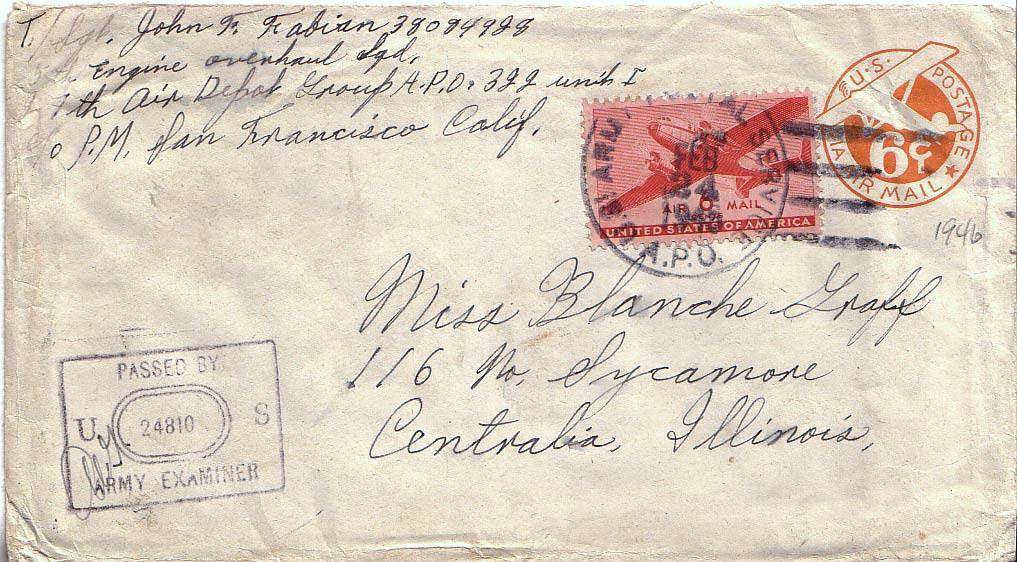 T/Sgt. John F. Fabian 38084928
Engine overhaul Sqd,
th Air Depot Group A.P.O. 322 unit 1
o P.M. San Francisco Calif.
U.S. POSTAGE
VIA AIR MAIL
6¢
U.S. ARMY POSTAL SERVICE
FEB
24
A.P.O.
AIR 6¢ MAIL
UNITED STATES OF AMERICA
1946
Miss Blanche Graff
116 No. Sycamore
Centralia, Illinois,
PASSED BY
U 24810 S
ARMY EXAMINER